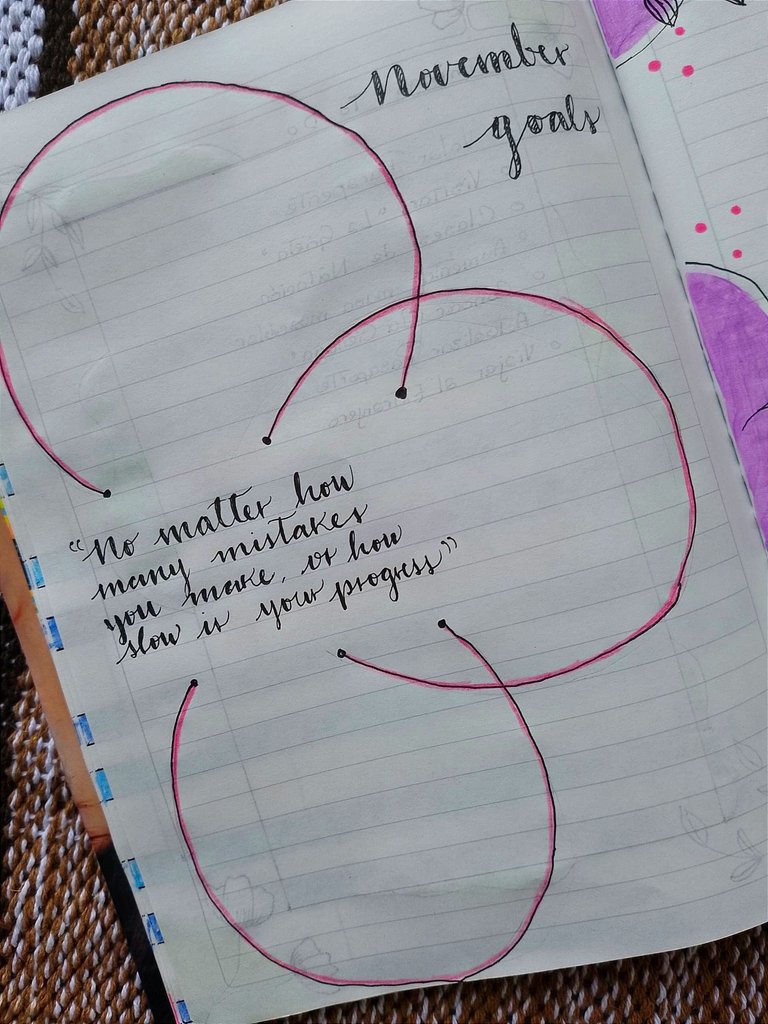 November
goals
“No matter how
many mistakes
you make, or how
slow is your progress”